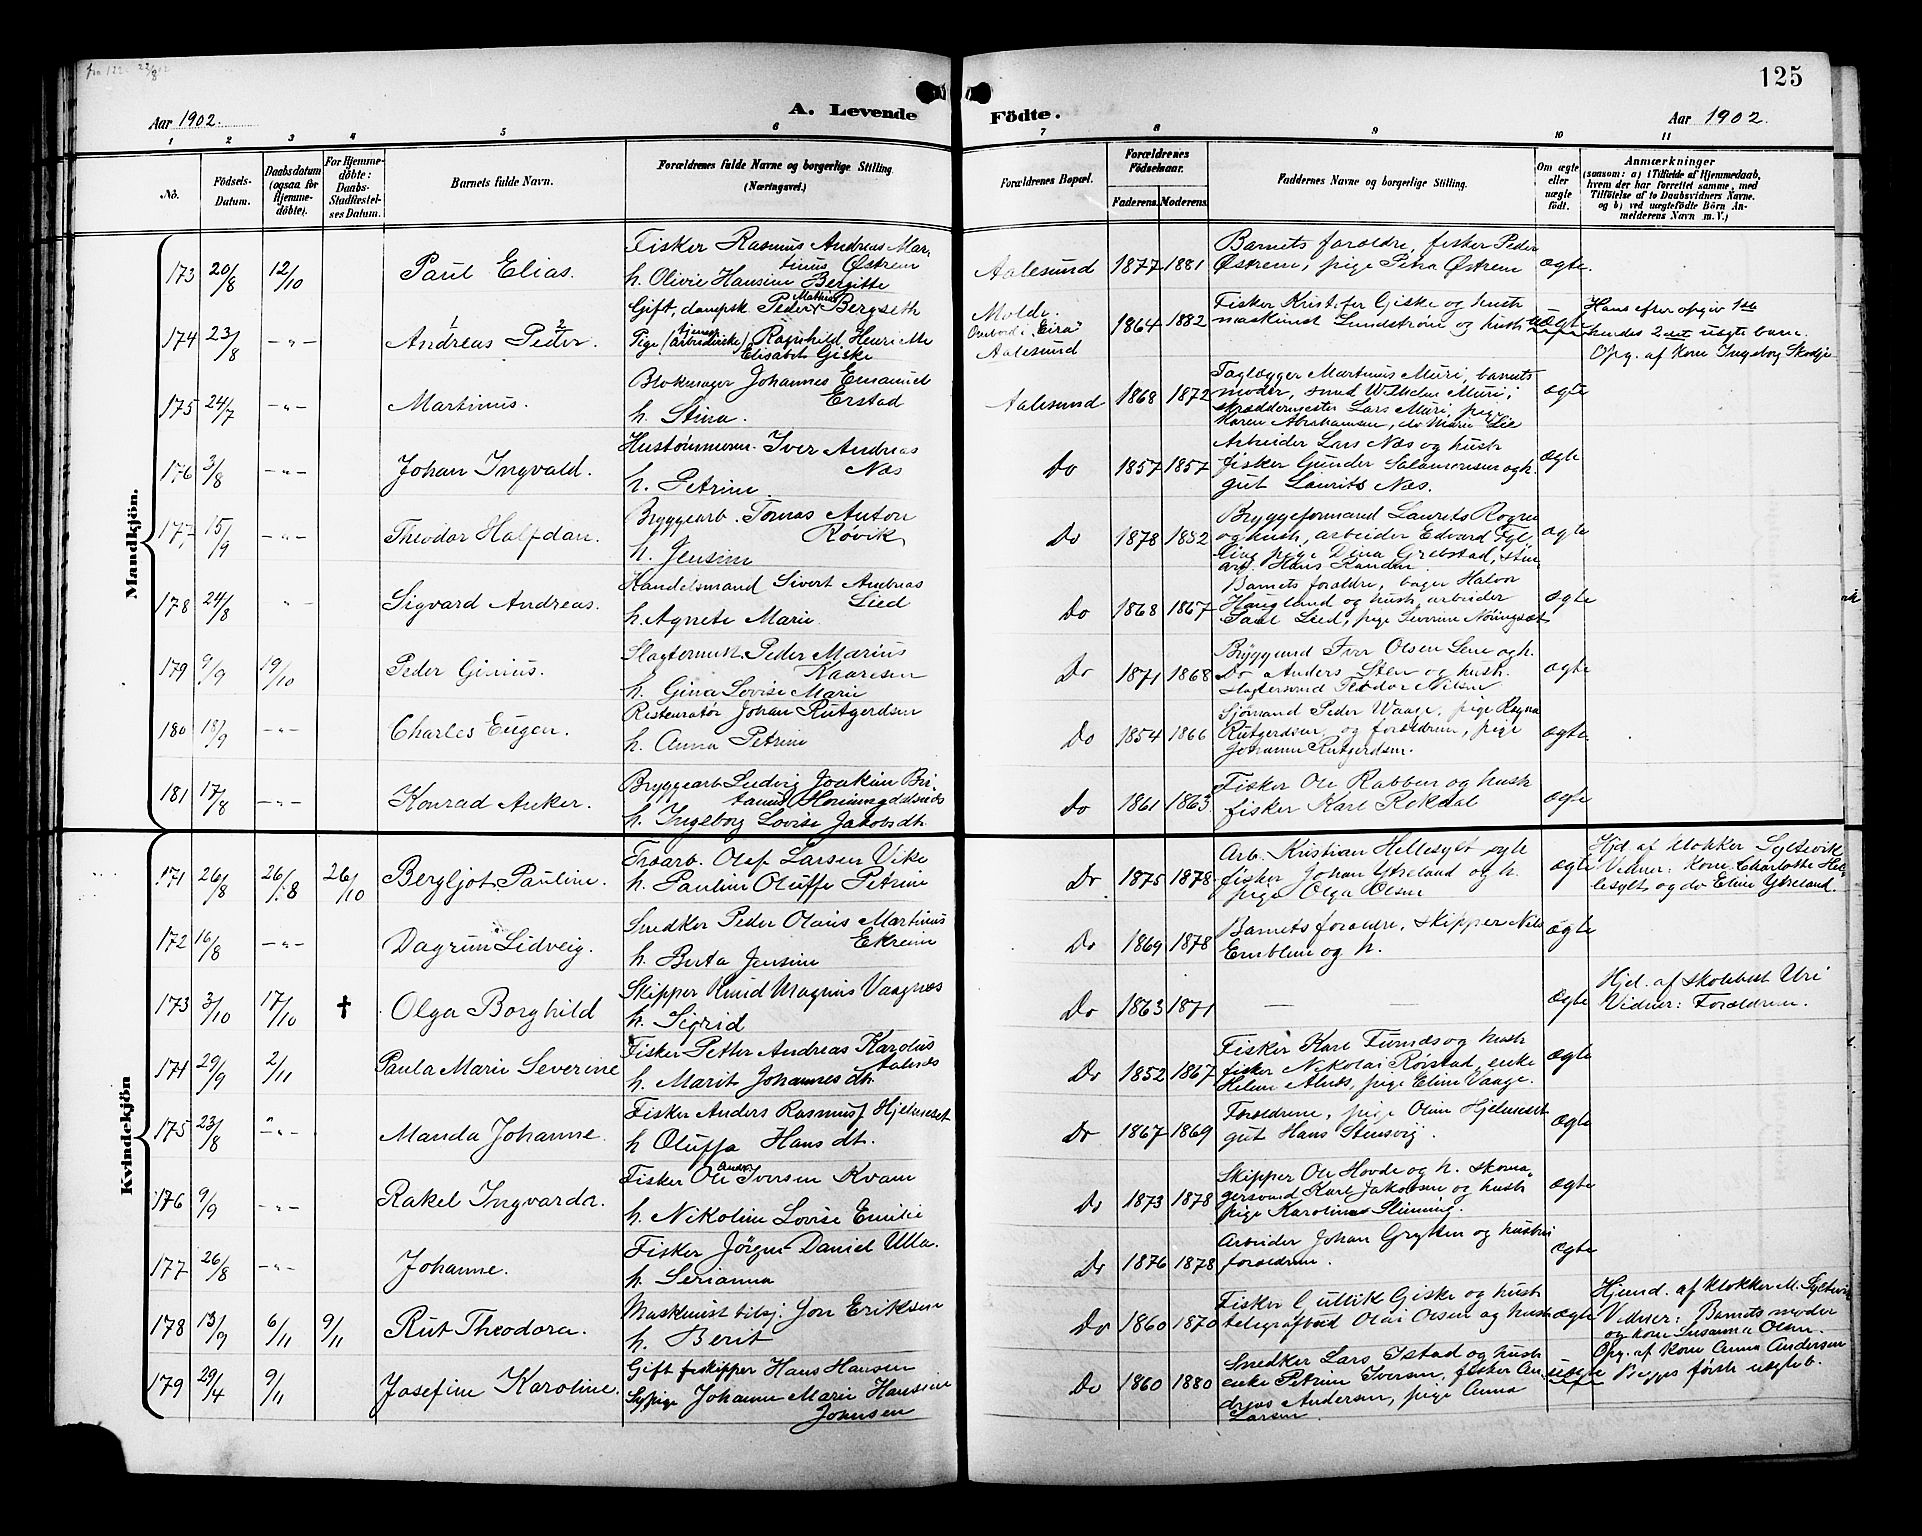 125
Aar 1902.
A. Levende Födte.
Aar 1902.
1 2 3 4 5 6 7 8 9 10 11
No.
Födsels-Datum.
Daabsdatum (ogsaa for Hjemmedöbte).
For Hjemmedöbte: Daabs-Stadfæstelses Datum.
Barnets fulde Navn.
Forældrenes fulde Navne og borgerlige Stilling. (Næringsvei.)
Forældrenes Bopæl.
Forældrenes Födselsaar.
Faderens. Moderens.
Faddernes Navne og borgerlige Stilling.
Om ægte eller uægte födt.
Anmærkninger
(saasom: a) i Tilfælde af Hjemmedaab, hvem der har forrettet samme, med Tilföielse af to Daabsvidners Navne. og b) ved uægtefödte Börn Anmelderens Navn m. V.)
Mandkjön.
173 20/8 12/10 Paul Elias. Fisker Rasmus Andreas Martinus Østrem h. Olivie Hansine Bergitte Aalesund 1877 1881 Barnets forældre, fisker Peder Østrem, pige Petra Østrem ægte
174 23/8 -"- Andreas Peder. Gift, dampsk Peder Mathias Bergseth Pige (tjenesp. Arbeiderske) Ragnhild Henriette Elisabet Giske Molde. Ombord i "Eira" Aalesund 1864 1882 Fisker Kristofer Giske og hustr maskinist Lundstrøm og hustr uægte Hans efter opgiv 1ste hendes 2det uægte barn. Opg. af Kone Ingeborg Skodje
175 24/7 -"- Martinus. Blokmager Johannes Emanuel Erstad h. Stina. Aalesund 1868 1872 Taglægger Martinus Muri, barnets moder, smed Wilhelm Muri, skræddermester Lars Muri, pige Maren Abrahamsen, do Marie Lie ægte
176 3/8 -"- Johan Ingvald. Hustømmerm. Iver Andreas Næs h. Petrine Do 1857 1857 Arbeider Lars Næs og hustr fisker Gunder Salamonsen og h. gut Laurits Næs. ægte
177 15/9 -"- Theodor Halfdan. Bryggearb. Tomas Anton Røvik h. Jensine Do 1878 1852 Bryggeformand Laurits Rogne og hustr, arbeider Edvard Fylling pige Dina Grebstad, sten arb. Hans Randen ægte
178 24/8 -"- Sigvard Andreas. Handelsmand Sivert Andreas Lied h. Agnete Marie Do 1868 1867 Barnets forældre, bager Halvor Haugland og hustr, arbeider Paul Lied, pige Severine Nøringset ægte
179 9/9 19/10 Peder Ginius. Slagtermest. Peder Marius Kaaresen h. Gina Lovise Marie Do 1871 1868 Bryggemd Iver Olsen Lene og h. Do Anders Sten og hustr. slagtersvend Teodor Nilsen ægte
180 18/9 -"- Charles Eugen. Restauratør Johan Rutgerdsen h. Anna Petrine Do 1854 1866 Sjømand Peder Waage, pige Ragna Rutgerdsen, og forældrene, pige Johanne Rutgerdsen. ægte.
181 17/8 -"- Konrad Anker. Bryggearb Ludvig Joakim Britanus Horningdalsnes h. Ingeborg Lovise Jakobsdt. Do 1861 1863 Fisker Ole Rabben og hustr fisker Karl Rekdal ægte
Kvindekjön
171 26/8 26/8 26/10 Bergljot Pauline. Fabarb. Olaf Larsen Vike h. Pauline Oluffe Petrine Do 1875 1878 Arb. Kristian Hellesylt fisker Johan Ytreland og h. pige Olga Olsen ægte Hjd af klokker Syltevik Vidner: kone Charlotte Hellesylt, og do Eline Ytreland.
172 16/8 -"- Dagrun Lidveig. Snedker Peder Olaus Martinus Ekrem h. Berta Jensine Do 1869 1878 Barnets forældre, skipper Nils Emblem og h. ægte
173 3/10 17/10 † Olga Borghild Skipper Knud Magnus Vaagnæs h. Sigrid Do 1863 1871 — — ægte Hjd. af skolebest Uri Vidner: Forældrene.
174 29/9 2/11 Paula Marie Severine Fisker Petter Andreas Karolus Aalnæs h. Marit Johannesdt. Do 1852 1867 Fisker Karl Furnæs og hustr fisker Nikolai Rørstad, enke Helene Alnæs, pige Eline Vaage. ægte
175 23/8 -"- Manda Johanne. Fisker Anders Rasmusf Hjelmeset h Oluffa Hansdt. Do 1867 1869 Forældrene, pige Oline Hjelmeset gut Hans Stensvig. ægte
176 9/9 -"- Rakel Ingvarda. Fisker Ole Andr. Iversen Kvam h. Nikoline Lovise Emilie Do 1873 1878 Skipper Ole Hovde og h. skomagersvend Karl Jakobsen og hustr pige Karoline Slinning. ægte
177 26/8 -"- Johanne. Fisker Jörgen Daniel Ulla. h. Serianna Do 1876 1878 Arbeider Johan Grytten og hustru forældrene. ægte
178 13/9 6/11 9/11 Rut Theodora. Maskinist tilsj: Jon Eriksen h. Berit Do 1860 1870 Fisker Gullik Giske og hustr telegrafbud Olai Olsen og hustr ægte Hjemd. af klokker M. Syltevik Vidner: Barnets moder og kone Susanna Olsen.
179 29/4 9/11 Josefine Karoline. Gift skipper Hans Hansen Sypige Johanne Marie Hansine Johnsen Do 1860 1880 Snedker Lars Istad og hustr enke Petrine Iversen, fisker Andreas Andersen, pige Anna Larsen uægte Opg. af kone Anna Andersen Begges første uægte b.